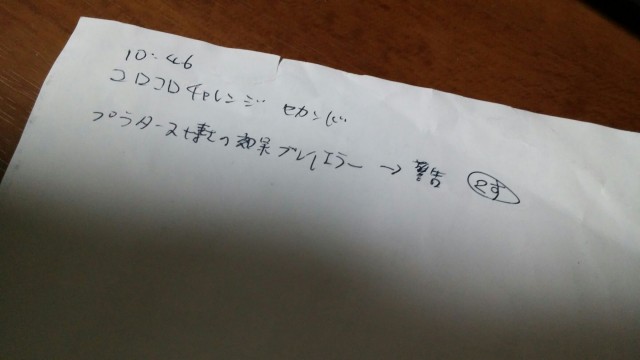 10:46
コロコロチャレンジ セカンド
プラタースキ事の効果プレイエラー → 警告